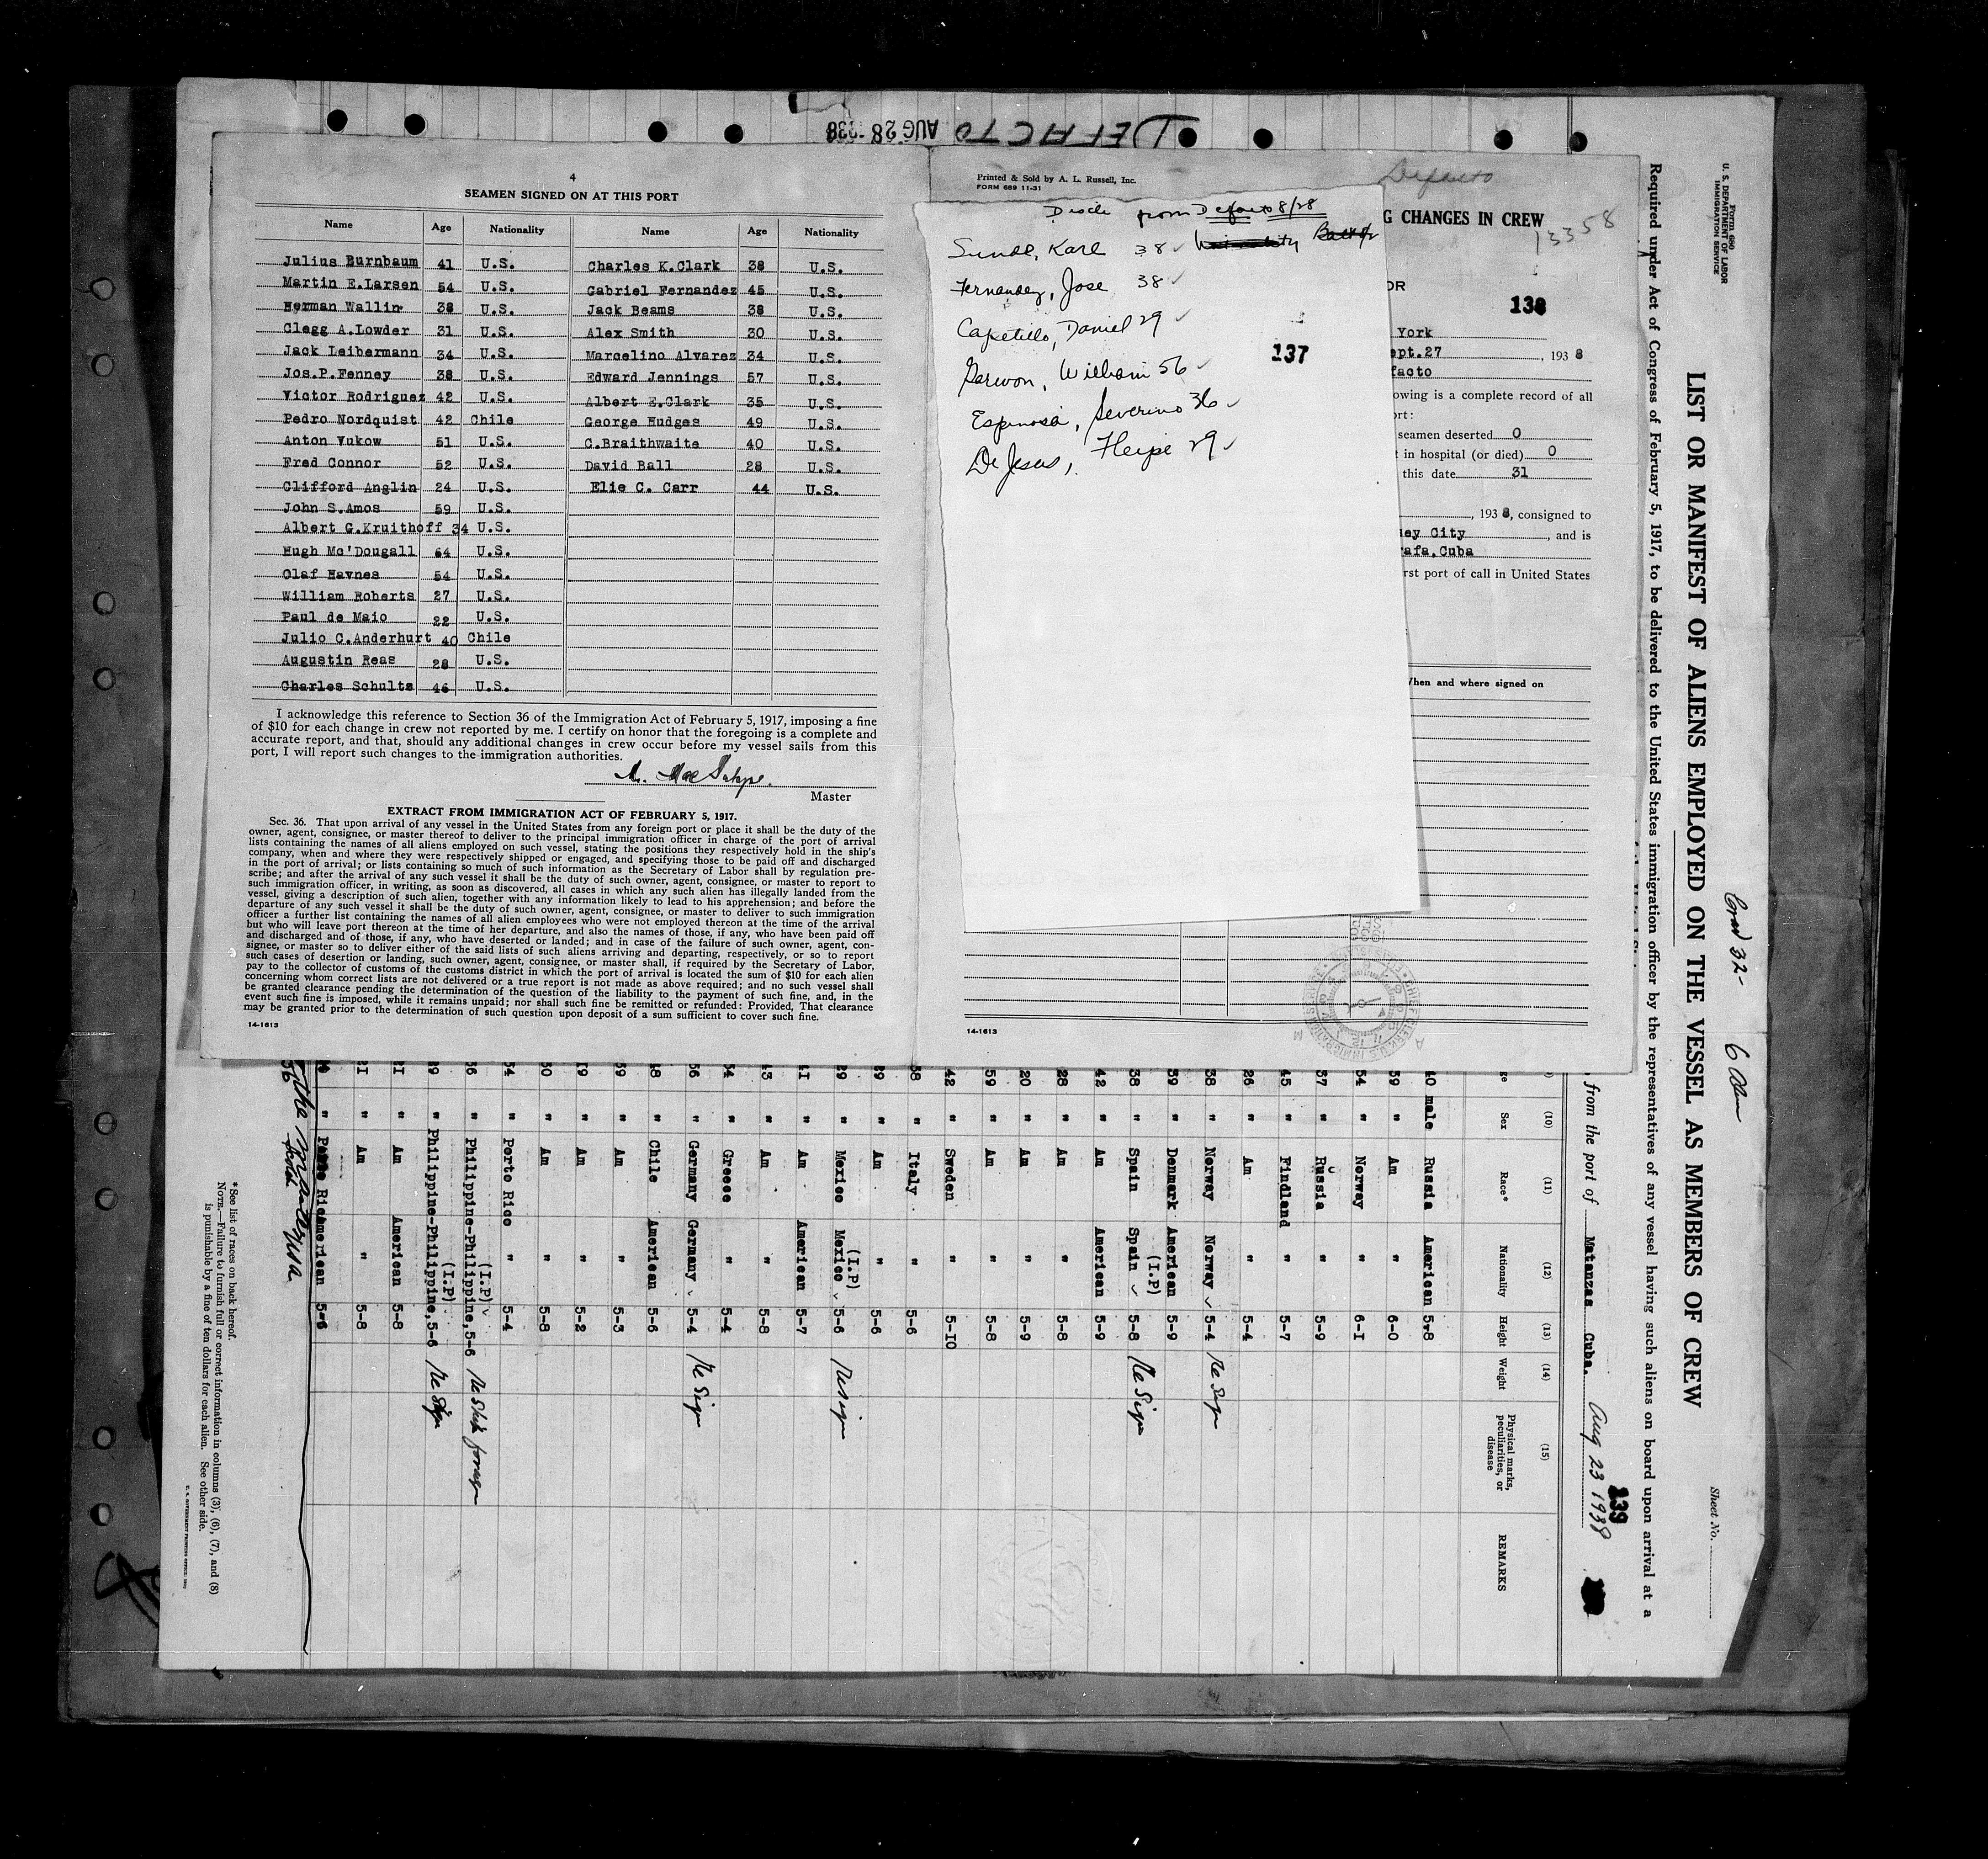 AUG 28 1938
DEFACTO
4
SEAMEN SIGNED ON AT THIS PORT
Name Age Nationality Name Age Nationality
Julius Burnbaum 41 U.S. Charles K.Clark 38 U.S.
Martin E.Larsen 54 U.S. Gabriel Fernandez 45 U.S.
Herman Wallin 38 U.S. Jack Beams 38 U.S.
Clegg A.Lowder 31 U.S. Alex Smith 30 U.S.
Jack Leibermann 34 U.S. Marcelino Alvarez 34 U.S.
Jos.P.Fenney 38 U.S. Edward Jennings 57 U.S.
Victor Rodriguez 42 U.S. Albert E.Clark 35 U.S.
Pedro Nordquist 42 Chile George Hudges 49 U.S.
Anton Vukow 51 U.S. C.Braithwaite 40 U.S.
Fred Connor 52 U.S. David Ball 28 U.S.
Clifford Anglin 24 U.S. Elie C. Carr 44 U.S.
John S.Amos 59 U.S.
Albert G.Kruithoff 34 U.S.
Hugh Mc'Dougall 64 U.S.
Olaf Havnes 54 U.S.
William Roberts 27 U.S.
Paul de Maio 22 U.S.
Julio C.Anderhurt 40 Chile
Augustin Reas 28 U.S.
Charles Schults 46 U.S.
I acknowledge this reference to Section 36 of the Immigration Act of February 5, 1917, imposing a fine
of $10 for each change in crew not reported by me. I certify on honor that the foregoing is a complete and
accurate report, and that, should any additional changes in crew occur before my vessel sails from this
port, I will report such changes to the immigration authorities.
Master
EXTRACT FROM IMMIGRATION ACT OF FEBRUARY 5, 1917.
Sec. 36. That upon arrival of any vessel in the United States from any foreign port or place it shall be the duty of the
owner, agent, consignee, or master thereof to deliver to the principal immigration officer in charge of the port of arrival
lists containing the names of all aliens employed on such vessel, stating the positions they respectively hold in the ship's
company, when and where they were respectively shipped or engaged, and specifying those to be paid off and discharged
in the port of arrival; or lists containing so much of such information as the Secretary of Labor shall by regulation pre-
scribe; and after the arrival of any such vessel it shall be the duty of such owner, agent, consignee, or master to report to
such immigration officer, in writing, as soon as discovered, all cases in which any such alien has illegally landed from the
vessel, giving a description of such alien, together with any information likely to lead to his apprehension; and before the
departure of any such vessel it shall be the duty of such owner, agent, consignee, or master to deliver to such immigration
officer a further list containing the names of all alien employees who were not employed thereon at the time of the arrival
but who will leave port thereon at the time of her departure, and also the names of those, if any, who have been paid off
and discharged and of those, if any, who have deserted or landed; and in case of the failure of such owner, agent, con-
signee, or master so to deliver either of the said lists of such aliens arriving and departing, respectively, or so to report
such cases of desertion or landing, such owner, agent, consignee, or master shall, if required by the Secretary of Labor,
pay to the collector of customs of the customs district in which the port of arrival is located the sum of $10 for each alien
concerning whom correct lists are not delivered or a true report is not made as above required; and no such vessel shall
be granted clearance pending the determination of the question of the liability to the payment of such fine, and, in the
event such fine is imposed, while it remains unpaid; nor shall such fine be remitted or refunded: Provided, That clearance
may be granted prior to the determination of such question upon deposit of a sum sufficient to cover such fine.
14-1613
Printed & Sold by A. L. Russell, Inc.
FORM 689 11-31
Defacto
from Defacto 8/28
Sunde, Karl 38
Fernandez, Jose 38
Capetillo, Daniel 29
Garwon, William 56
Espinosa, Severino 36
De Jesus, Felipe 29
137
G CHANGES IN CREW
13358
OR
138
York
ept.27, 1938
facto
owing is a complete record of all
ort:
seamen deserted 0
t in hospital (or died) 0
this date 31
, 1938, consigned to
ey City, and is
rafa,Cuba
rst port of call in United States
When and where signed on
14-1613
Form 680
U. S. DEPARTMENT OF LABOR
IMMIGRATION SERVICE
Sheet No.
LIST OR MANIFEST OF ALIENS EMPLOYED ON THE VESSEL AS MEMBERS OF CREW
Required under Act of Congress of February 5, 1917, to be delivered to the United States immigration officer by the representatives of any vessel having such aliens on board upon arrival at a
, from the port of Matanzas Cuba. Aug 23 1938
139
(10) (11) (12) (13) (14) (15)
Sex Race* Nationality Height Weight Physical marks, peculiarities, or disease REMARKS
40 male Russia American 5-8
39 " Am " 6-0
34 " Norway " 6-1
37 " Russia " 5-9
45 " Findland " 5-7
26 " Am " 5-4
38 " Norway Norway 5-4 Re Sign
39 " Denmark American 5-9
38 " Spain Spain (I.P) 5-8 Re Sign
42 " Am American 5-9
28 " Am " 5-8
20 " Am " 5-9
59 " Am " 5-8
42 " Sweden " 5-10
38 " Italy " 5-6
29 " Am " 5-6
29 " Mexico Mexico (I.P) 5-6 Resign
41 " Am American 5-7
43 " Am " 5-8
54 " Greece " 5-4
56 " Germany Germany 5-4 Re Sign
48 " Chile American 5-6
39 " Am " 5-3
19 " Am " 5-2
50 " Am " 5-8
54 " Porto Rico " 5-4
36 " Philippine-Philippine, (I.P) 5-6 Re Ship foreign
29 " Philippine-Philippine, (I.P) 5-6 Re Sign
21 " Am American 5-8
21 " Am " 5-8
" Rico American 5-6
*See list of races on back hereof.
NOTE.—Failure to furnish full or correct information in columns (3), (6), (7), and (8)
is punishable by a fine of ten dollars for each alien. See other side.